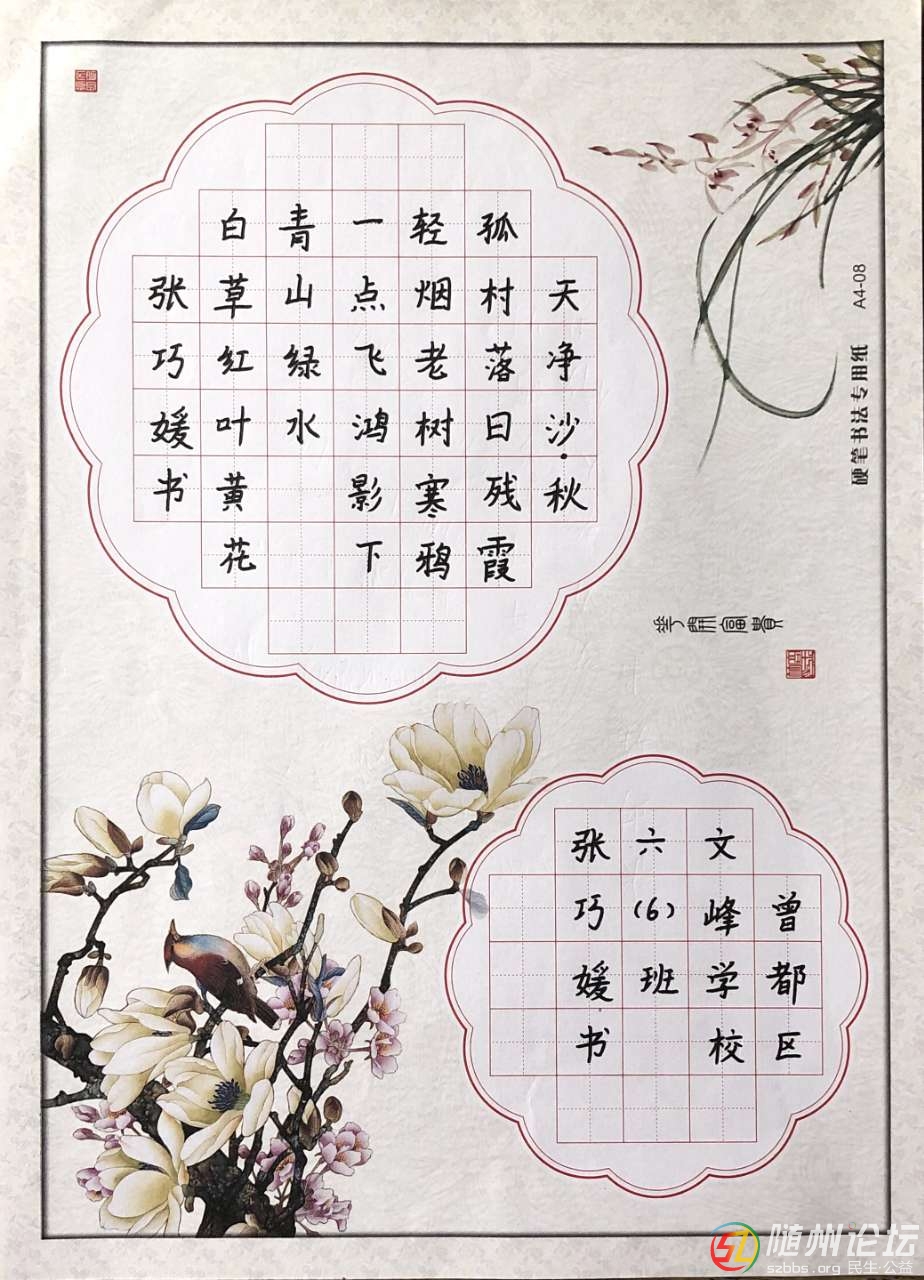 天净沙·秋
孤村落日残霞
轻烟老树寒鸦
一点飞鸿影下
青山绿水
白草红叶黄花
张巧媛书
硬笔书法专用纸 A4-08
曾都区
文峰学校
六(6)班
张巧媛书
随州论坛
szbbs.org 民生·公益